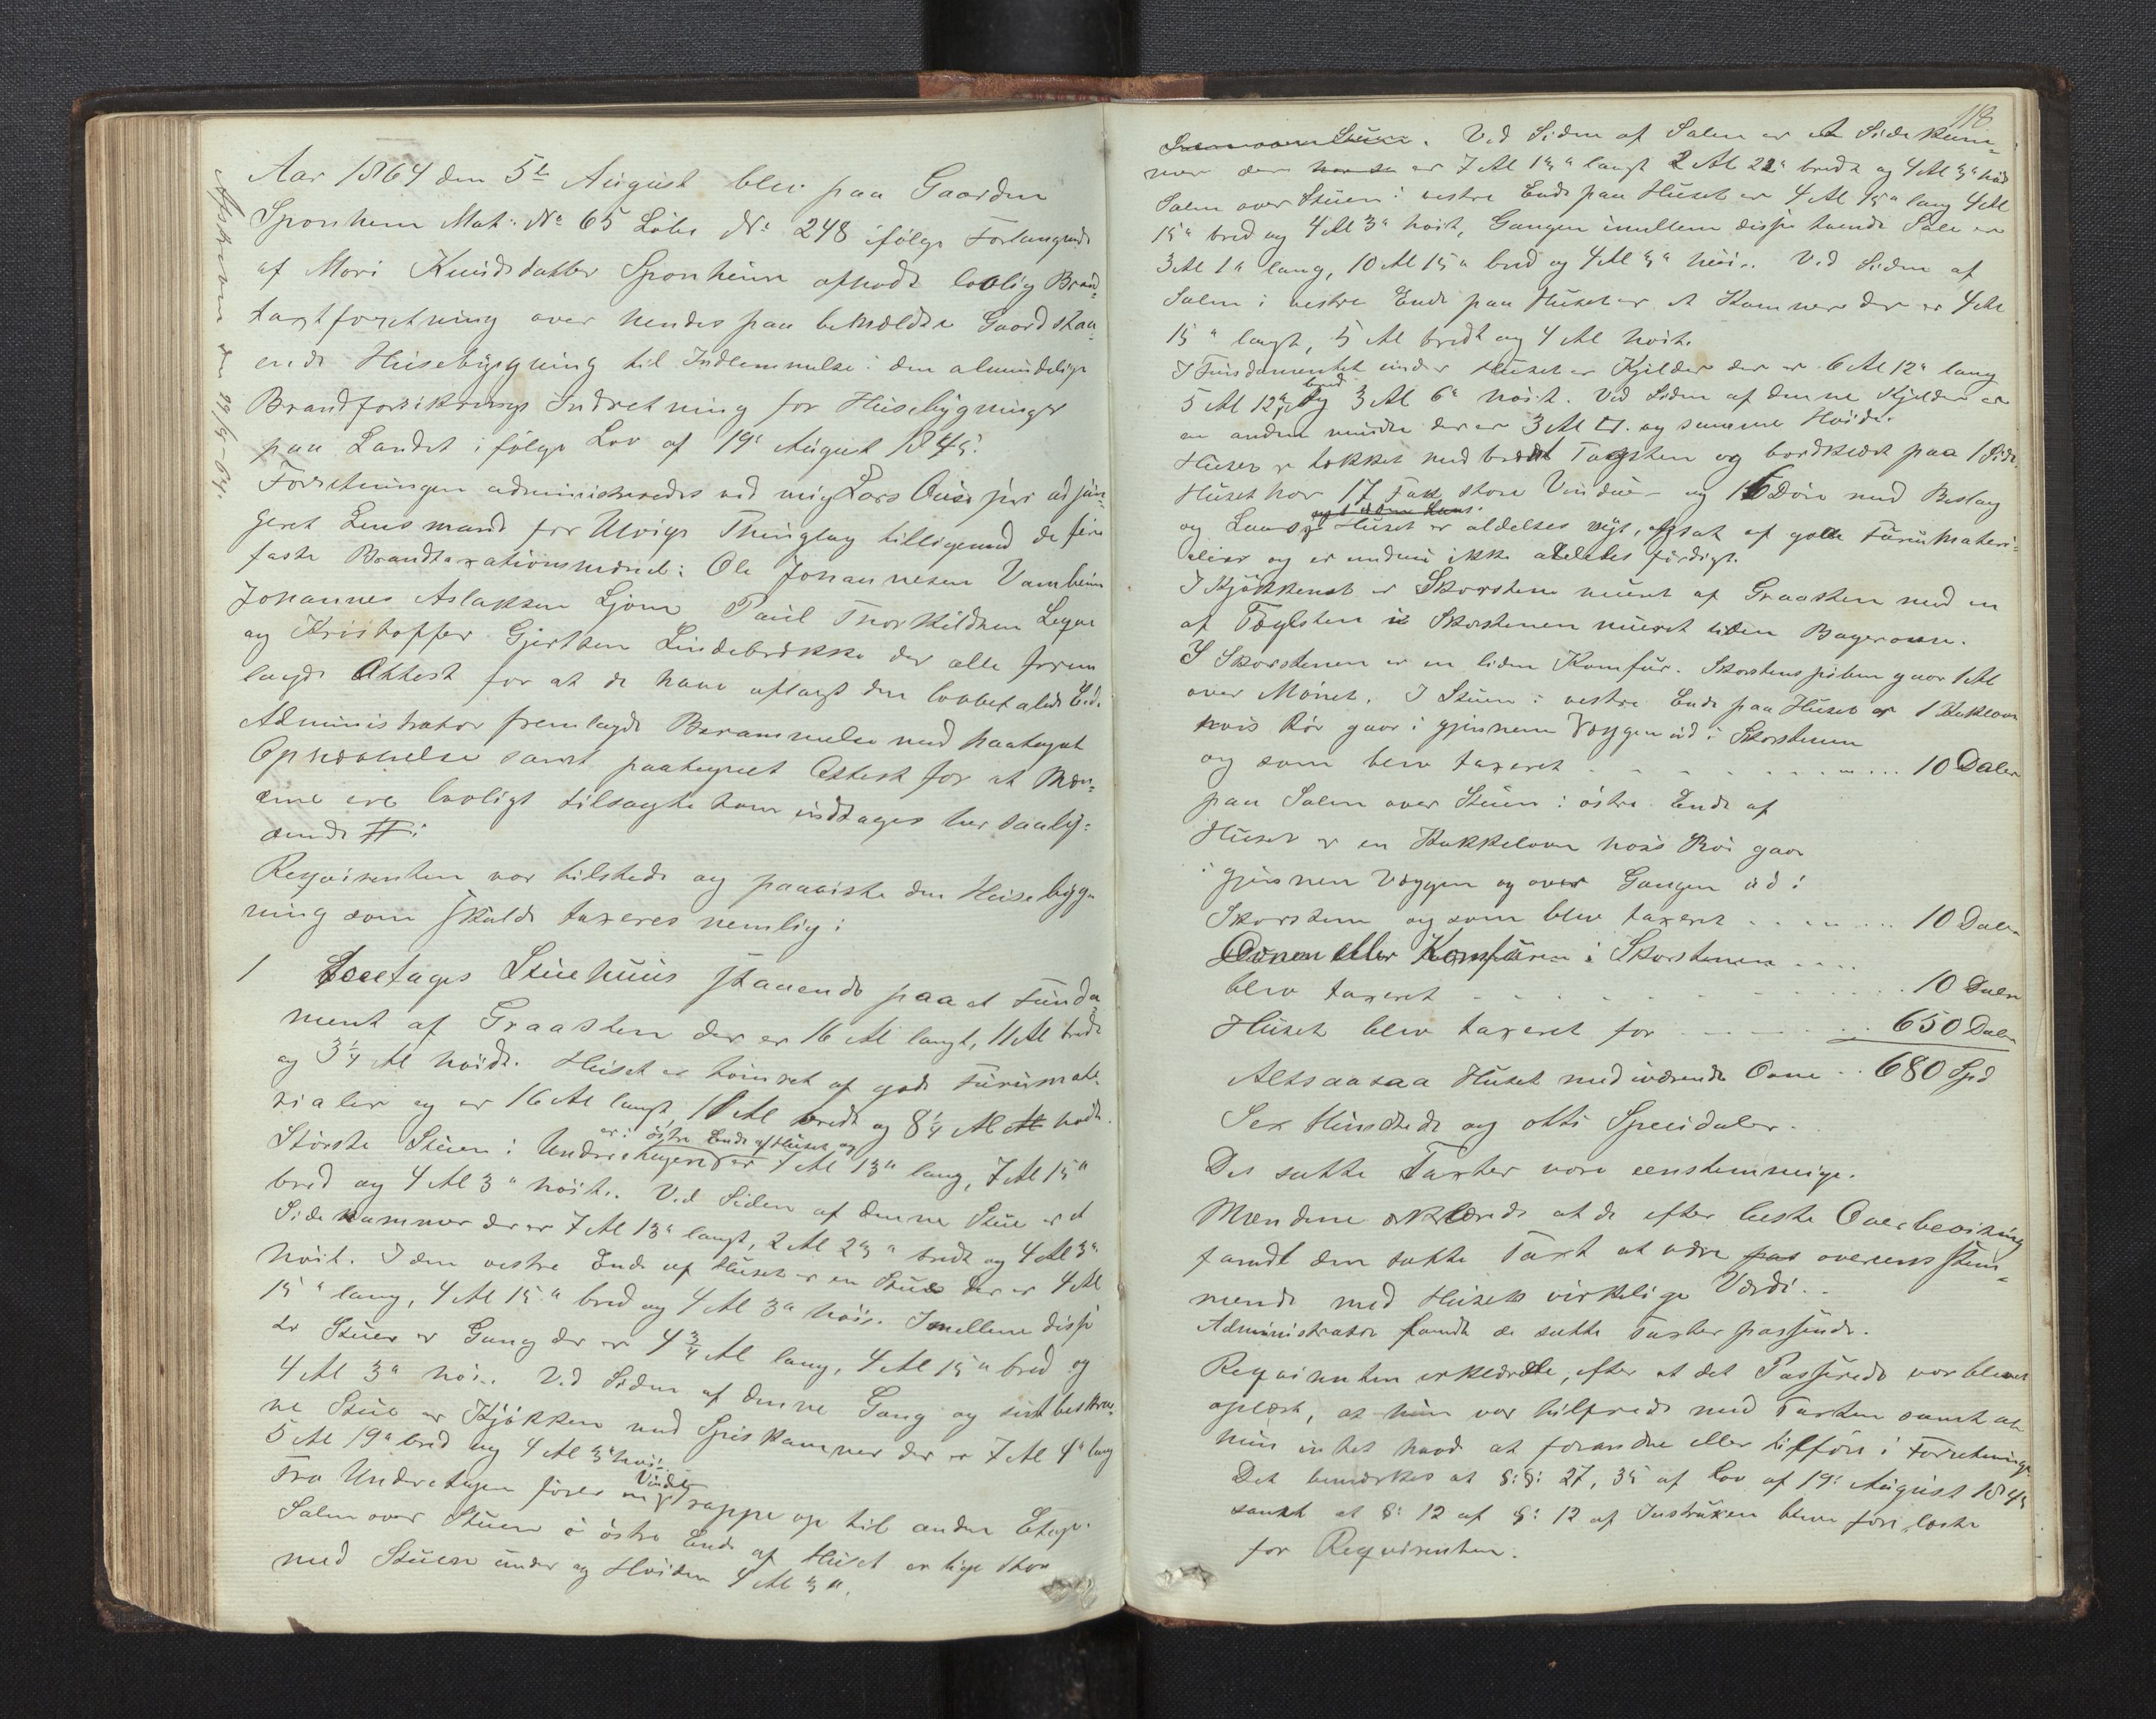 Aar 1864 den 5te August blev paa Gaarden
Sponheim Mat: No 65 Löbe No 248 ifölge Forlangende
af Mari Knudsdatter Sponheim afholdt lovlig Brand-
taxtforretning over hendes paa bemældte Gaard staa-
ende Huusebygning til Indlemmelse i den almindelige
Brandforsikrings Indretning for Huusebygninger
paa Landet ifölge Lov af 19de August 1845.
Forretningen administreredes ved mig Lars adjun-
geret Lensmand for Ulvigs Thinglag tilligemed de fire
faste Brandtaxationsmænd: Ole Johannesen Vambheim
Johannes Aslaksen Ljone Paul Thorkildsen Legne
og Kristoffer Gjertsen Lindebrekke der alle frem
lagde Attest for at de have aflagt den lovbefalede Eed.
Administrator fremlagde Berammelse med paategnet
Opnævnelse samt paategnet Attest for at Mæn-
dene ere lovligt tilsagte som indtages her saaly-
dende #:
Reqvirenten var tilstede og paaviste den Huusebyg-
ning som skulde taxeres nemlig:
1 Toetages Stuehuus staaende paa et Funda-
ment af Graasten der er 16 Al langt, 11 Al bredt
og 3 1/4 Al höidt. Huset er tömret af gode Furumate-
rialer og er 16 Al langt, 11 Al bredt og 8 1/4 Al höidt.
er i östre Ende af Huset og
Störste Stuen i Underetagen er 7 Al 13" lang, 7 Al 15"
bred og 4 Al 3" höit. Ved Siden af denne Stue er et
Sidekammer der er 7 Al 13" langt, 2 Al 23" bredt og 4 Al 3"
höit. I den vestre Ende af Huset er en Stue der er 4 Al
15" lang, 4 Al 15" bred og 4 Al 3" höi. Imellem disse
to Stuer er Gang der er 4 3/4 Al lang, 4 Al 15" bred og
4 Al 3" höi. Ved Siden af denne Gang og sidst beskrev-
ne Stue er Kjökken med Spiskammer der er 7 Al 4" lang
5 Al 19" bred og 4 Al 3" höi.
Vindel
Fra Underetagen förer en Trappe op til anden Etage.
Salen over Stuen i östre Ende af Huset er lige stor
med Stuen under og Höiden 4 Al 3".
Afskreven den 29/8-64.
118
Ved Siden af Salen er et Sidekam-
mer der er 7 Al 13" langt 2 Al 22" bredt og 4 Al 3" höit
Salen over Stuen i vestre Ende paa Huset er 4 Al 15" lang 4 Al
15" bred og 4 Al 3" höit, Gangen imellem disse tvende Sale er
3 Al 1" lang, 10 Al 15" bred og 4 Al 3" höi. Ved Siden af
Salen i vestre Ende paa Huset er et Kammer der er 4 Al
15" langt, 5 Al bredt og 4 Al höit.
I Fundamentet under Huset er Kjelder der er 6 Al 12" lang
bred
5 Al 12" og 3 Al 6" höit. Ved Siden af denne Kjelder er
en anden mindre der er 3 Al □. og samme Höide.
Huset er tækket med brændt Tagsten og bordklædt paa 1 Side.
Huset har 17 Fag store Vinduer og 16 Döre med Beslag
og Laas. Huset er aldeles nyt, opsat af gode Furumateri-
alier og er endnu ikke aldeles færdigt.
I Kjökkenet er Skorsten muret af Graasten med en
af Teglsten i Skorstenen muret liden Bagerovn.
I Skorstenen er en liden Komfur. Skorstenspiben gaar 1 Al
over Mönet. I Stuen i vestre Ende paa Huset er 1 Kakkelovn
hvis Rör gaar i gjennem Væggen ud i Skorstenen
og som blev taxeret . . . . . . . . . . 10 Daler
paa Salen over Stuen i östre Ende af
Huset er en Kakkelovn hvis Rör gaar
i gjennem Væggen og over Gangen ud i
Skorsten og som blev taxeret . . . . . . . 10 Daler
Ovnen eller Komfuren i Skorstenen . . . .
blev taxeret . . . . . . . . . . . . 10 Daler
Huset blev taxeret for . . . . . . . 650 Daler
Altsaasaa Huset med iværende Ovne . . 680 Spd
Sex Hundrede og otti Speciedaler.
De satte Taxter vare eenstemmige.
Mændene erklærede at de efter beste Overbeviisning
fandt den satte Taxt at være overensstem-
mende med Husets virkelige Værdi.
Administrator fandt de satte Taxter passende.
Reqvirenten erklærede, efter at det Passerede var blevet
oplæst, at hun var tilfreds med Taxten samt at
hun intet havde at forandre eller tilföre i Forretningen.
Det bemærkes at §.§. 27, 35 af Lov af 19: August 1845
samt at §: 12 af §: 12 af Instruxen bleve forelæste
for Reqvirenten.